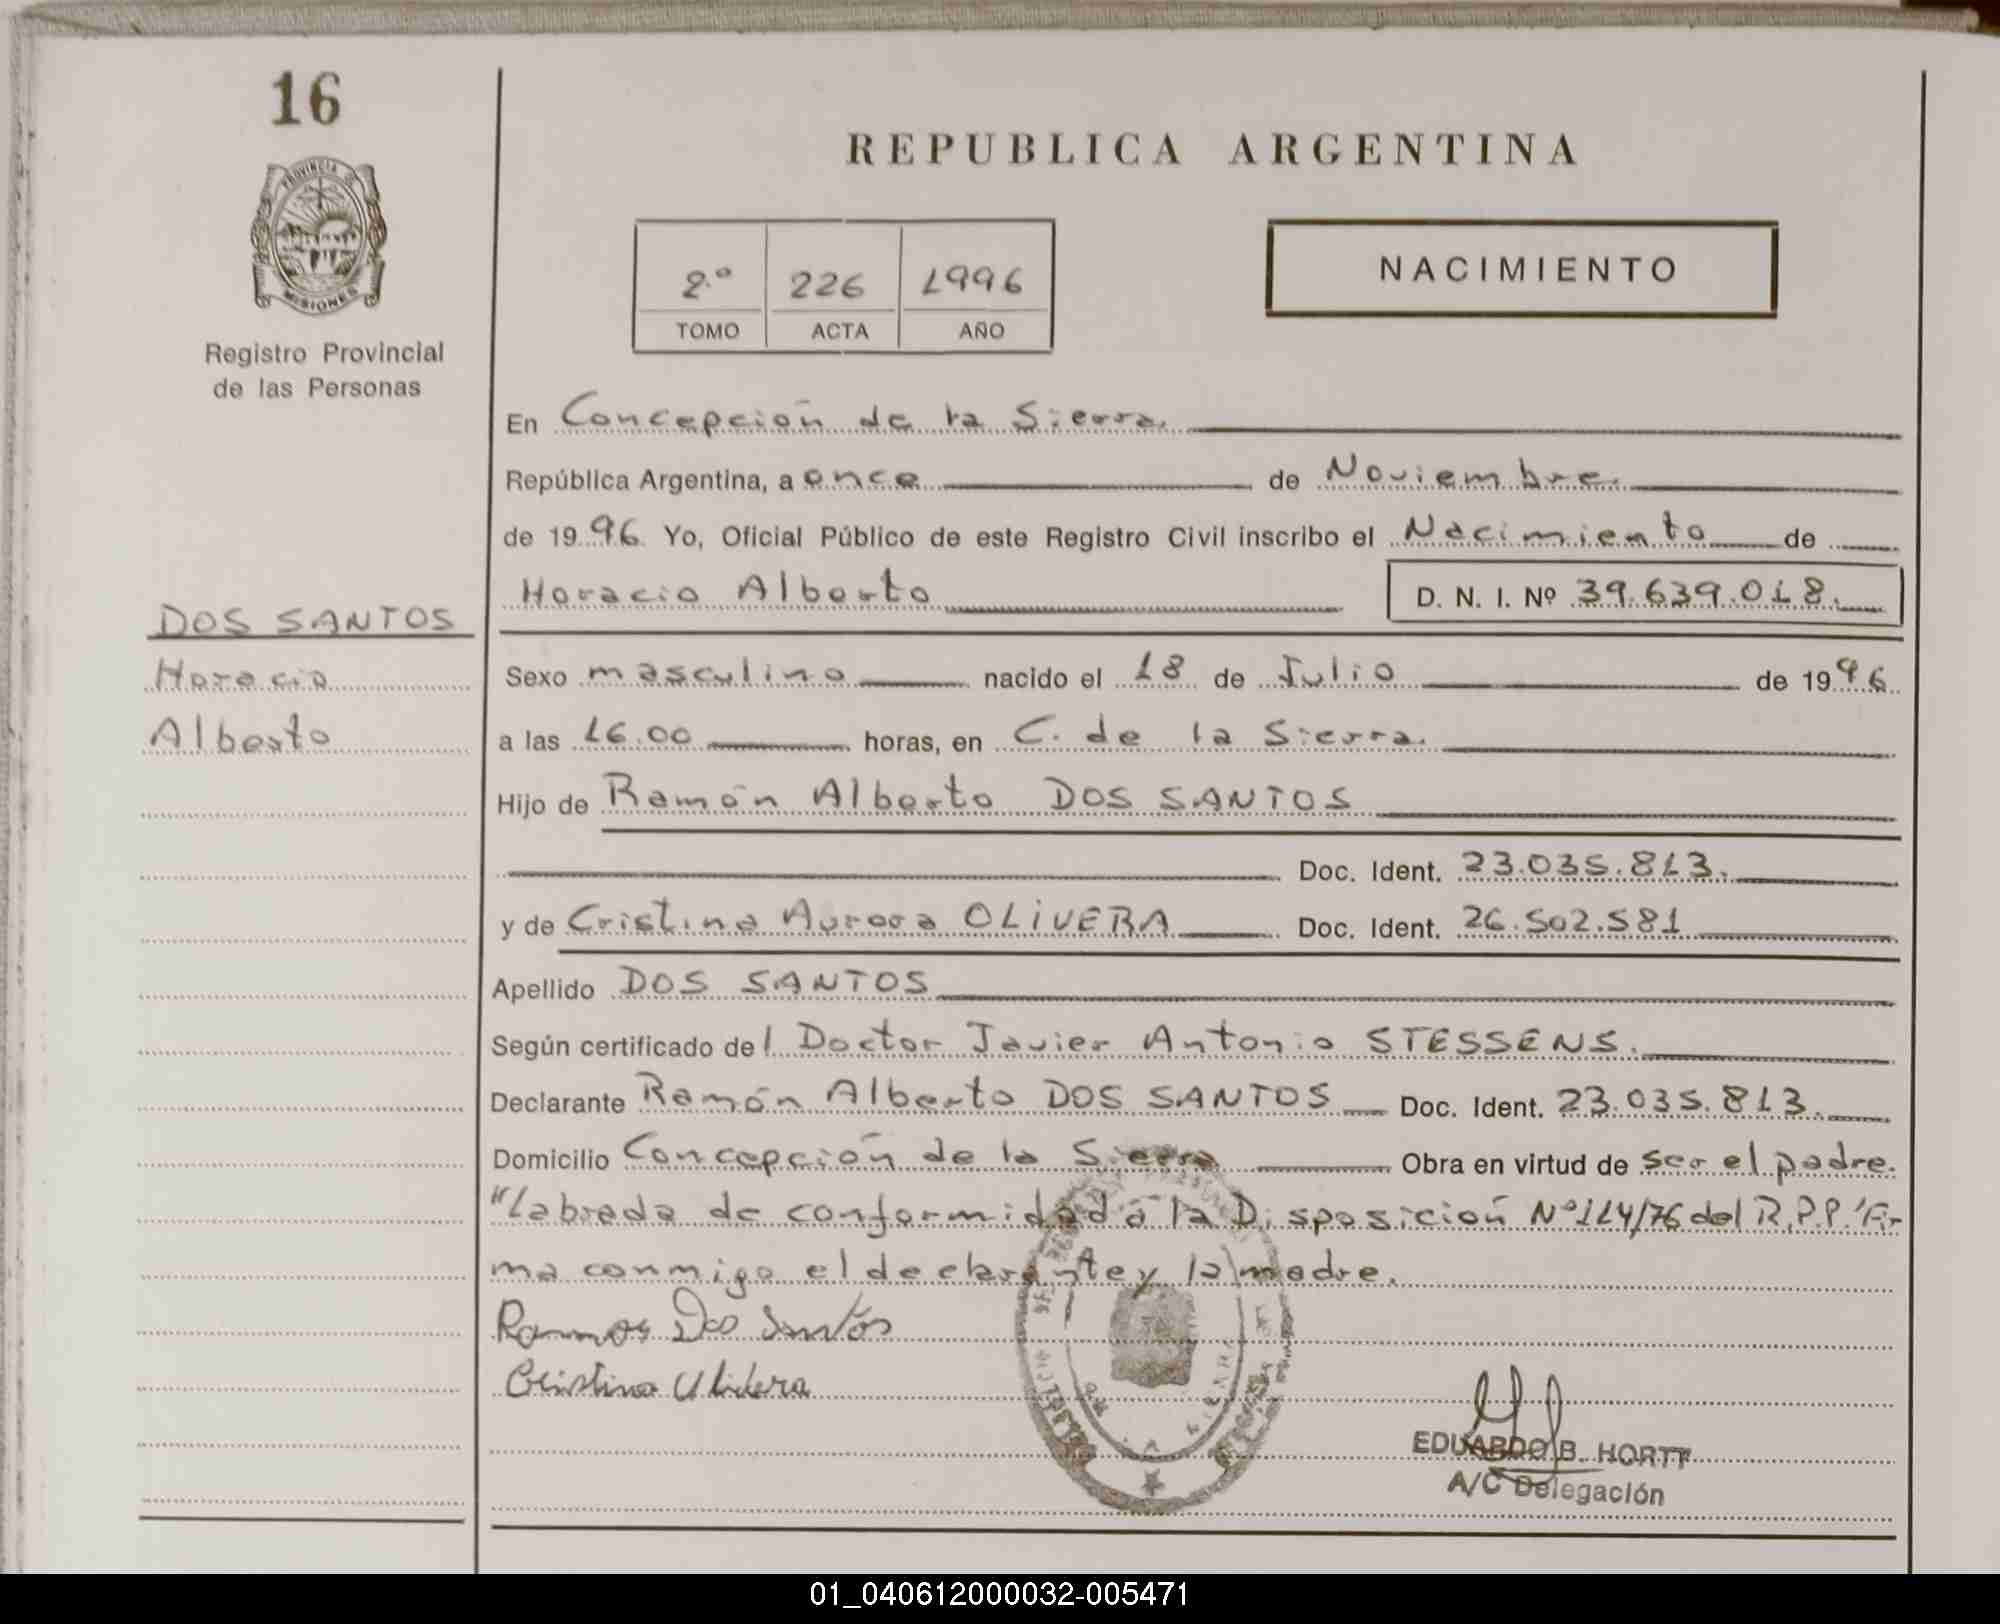 16
PROVINCIA DE
MISIONES
Registro Provincial
de las Personas
DOS SANTOS
Horacio
Alberto
REPUBLICA ARGENTINA
2º 226 1996
TOMO ACTA AÑO
NACIMIENTO
En Concepción de la Sierra.
República Argentina, a once de Noviembre.
de 1996. Yo, Oficial Público de este Registro Civil inscribo el Nacimiento de
Horacio Alberto D. N. I. Nº 39.639.018.
Sexo masculino nacido el 18 de Julio de 1996
a las 16.00 horas, en C. de la Sierra.
Hijo de Ramón Alberto DOS SANTOS
Doc. Ident. 23.035.813.
y de Cristina Aurora OLIVERA Doc. Ident. 26.502.581
Apellido DOS SANTOS
Según certificado del Doctor Javier Antonio STESSENS.
Declarante Ramón Alberto DOS SANTOS Doc. Ident. 23.035.813.
Domicilio Concepción de la Sierra Obra en virtud de ser el padre.
"Labrada de conformidad a la Disposición Nº 114/76 del R.P.P." Fir-
ma conmigo el declarante y la madre.
Ramon Dos Santos
Cristina Olivera
EDUARDO B. HORTT
A/C Delegación
01_040612000032-005471